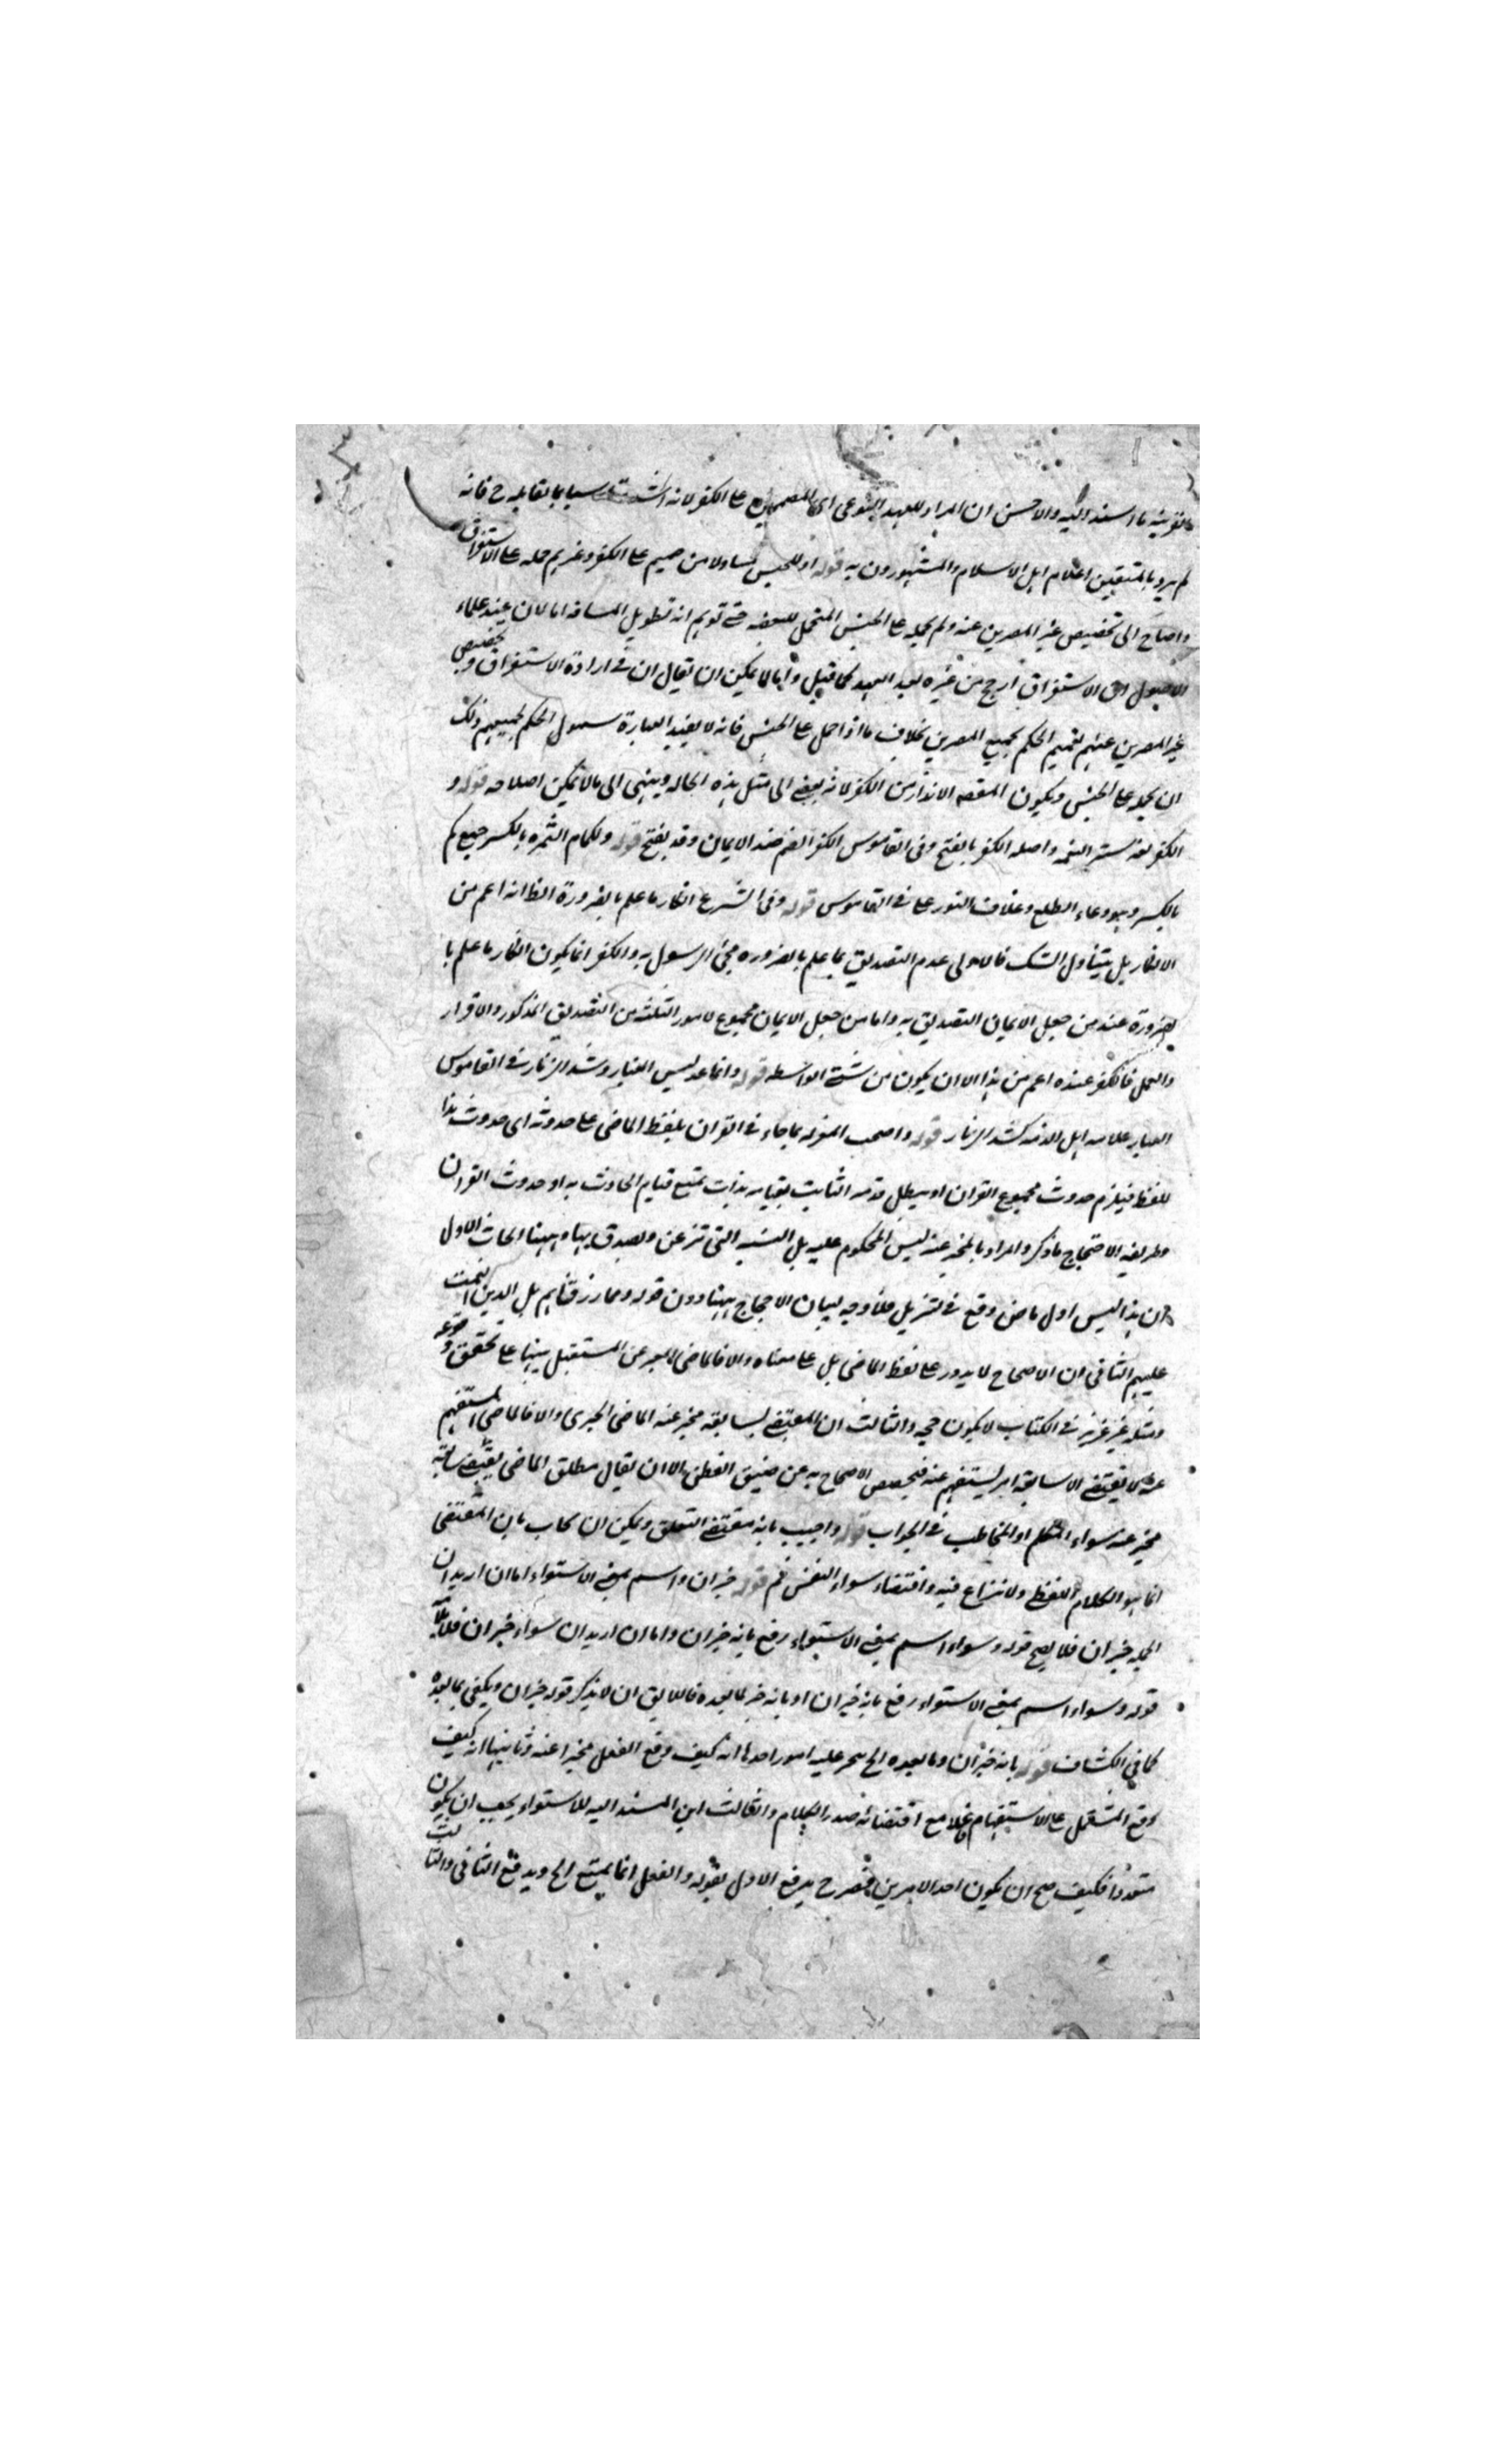 بقرينة ما اسند اليه والاحسن ان المراد للعهد النوعى اى المصممين على الكفر لانه سيما بمقابله ح فانه
لم يرد بالمتقين اعلام اهل الاسلام والمشهورون به قوله او للجنس متناولا من صمم على الكفر وغيرهم حمله على الاستغراق
واحتاج الى تخصيص غير المصرين عنه ولم يحمله على الجنس المتحمل للبعض حتى توهم انه تطويل المسافة اما لان عند علماء
الاصول ان الاستغراق ارجح من غيره بعد العهد كما قيل واما لما يمكن ان يقال ان فى ارادة الاستغراق وتخصيص
غير المصرين عنهم تعميم الحكم لجميع المصرين بخلاف ما اذا حمل على الجنس فانه لا يفيد العبارة شمول الحكم لجميعهم ولك
ان تحمله على الجنس ويكون المقصد الانذار من الكفر لانه يفضى الى مثل هذه الحالة وينهى الى ما لا يمكن اصلاحه قوله و
الكفر لغة ستر النعمة واصله الكفر بالفتح وفى القاموس الكفر بالضم ضد الايمان وقد يفتح قوله ولكمام الثمرة بالكسر جمع كم
بالكسر وهو وعاء الطلع وغلاف النور على ما فى القاموس قوله وفى الشرع انكار ما علم بالضرورة الظ انه اعم من
الانكار بل يتناول الشك فالاولى عدم التصديق بما علم بالضرورة مجئ الرسول به والكفر انما يكون انكار ما علم با
لضرورة عند من جعل الايمان التصديق به واما من جعل الايمان مجموع الامور الثلثة من التصديق المذكور والاقرار
والعمل فالكفر عنده اعم من هذا الا ان يكون من مثبتى الواسطة قوله وانما عد لبس الغيار وشد الزنار فى القاموس
الغيار علامة اهل الذمة كشد الزنار قوله واحتجت المعتزلة بما جاء فى القران بلفظ الماضى على حدوثه اى حدوث هذا
اللفظ فيلزم حدوث مجموع القران او يبطل قدمه الثابت بقيامه بذات يمتنع قيام الحادث به او حدوث القران
وطريقة الاحتجاج ما ذكر والمراد بالمخبر عنه ليس المحكوم عليه بل النسبة التى تذعن وتصدق بها وههنا ابحاث الاول
ان هذا ليس اول ماض وقع فى التنزيل فلا وجه لبيان الاحتجاج ههنا دون قوله ومما رزقناهم بل الذين انعمت
عليهم الثانى ان الاحتجاج لا يدور على لفظ الماضى بل على معناه والا فالماضى يعبر عن المستقبل تنبيها على تحقق وقوعه
ومثله غير عزيز فى الكتاب لا يكون حجة والثالث ان المقتضى لسابقة مخبر عنه الماضى الخبرى والا فالماضى المستفهم
عنه لا يقتضى الا سابقة امر يستفهم عنه فتخصيص الاحتجاج به عن ضيق الفطن الا ان يقال مطلق الماضى يقتضى سابقة
مخبر عنه سواء المتكلم او المخاطب فى الجواب قوله واجيب بانه مقتضى التعلق ويمكن ان يجاب بان المقتضى
انما هو الكلام اللفظى ولا نزاع فيه واقتضاء سواء النفس ثم قوله خبر ان واسم بمعنى الاستواء اما ان اريد ان
الجملة خبر ان فلا يصح قوله وسواء اسم بمعنى الاستواء رفع بانه خبر ان واما ان اريد ان سواء خبر ان فلا
قوله وسواء اسم بمعنى الاستواء رفع بانه خبر ان او بانه خبر لما بعده فاللايق ان لا يذكر قوله خبر ان ويكتفى بما بعده
كما فى الكشاف قوله بانه خبر ان وما بعده الخ يتجه عليه امور احدها انه كيف وقع الفعل مخبرا عنه وثانيها انه كيف
وقع المشتمل على الاستفهام فاعلا مع اقتضائه صدر الكلام والثالث ان المسند اليه للاستواء يجب ان يكون
متعددا فكيف صح ان يكون احد الامرين فصرح بدفع الاول بقوله والفعل انما يمتنع الخ ويدفع الثانى والثالث